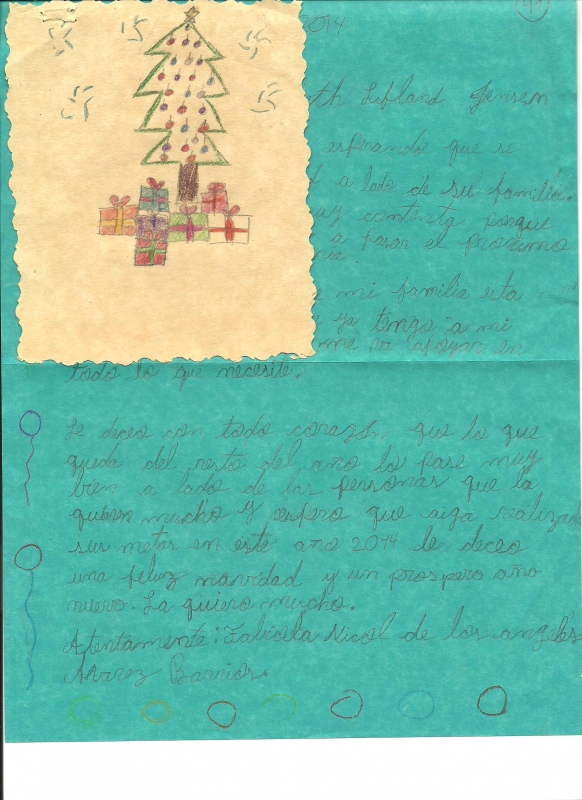 2014
Lefland Jensen
esperando que se
a lado de su familia.
contenta poeque
a pasar el proximo
mi familia esta
ya tengo a mi
me va apoyar en
todo lo que necesite.
Le deceo con todo corazón que lo que
queda del resto del año lo pase muy
bien a lado de las personas que la
quieren mucho y espero que siga realizad
sus metas en este año 2014 le deceo
una feliz navidad y un prospero año
nuevo. La quiero mucho.
Atentamente: Nicol de los angeles
Alvarez Barrios.